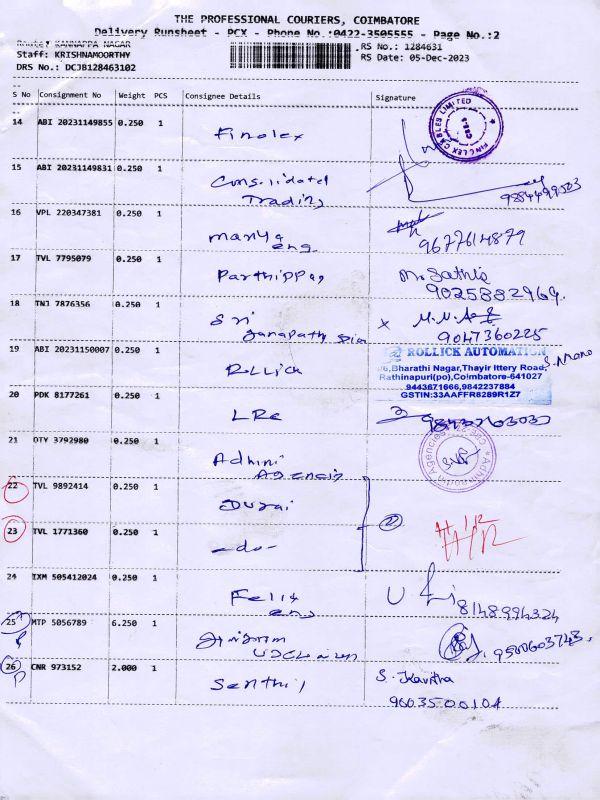 THE PROFESSIONAL COURIERS, COIMBATORE
Delivery Runsheet - PCX - Phone No.:0422-3505555 - Page No.:2
Route: KANNAPPA NAGAR
Staff: KRISHNAMOORTHY
DRS No.: DCJB128463102
RS No.: 1284631
RS Date: 05-Dec-2023
S No Consignment No Weight PCS Consignee Details Signature
14 ABI 20231149855 0.250 1 Finolex
FINOLEX CABLES LIMITED
15 ABI 20231149831 0.250 1 Consolidated
Trading
9884499503
16 VPL 220347381 0.250 1 Manya
eng.
9677614879
17 TVL 7795079 0.250 1 Parthippan M. Sathis
9025882969.
18 TNJ 7876356 0.250 1 Sri
Ganapathy
9047360225
19 ABI 20231150007 0.250 1 Rollick
ROLLICK AUTOMATION
Bharathi Nagar,Thayir Ittery Road,
Rathinapuri(po),Coimbatore-641027
9443671666,9842237884
GSTIN:33AAFFR8289R1Z7
S. Mano
20 PDK 8177261 0.250 1 LRC
21 OTY 3792980 0.250 1 Adhini
Agencis
22 TVL 9892414 0.250 1 Durai
23 TVL 1771360 0.250 1 -do-
②
24 IXM 505412024 0.250 1 Felix
eng
8148994324
25 MTP 5056789 6.250 1
9500603743.
26 CNR 973152 2.000 1 Senthil S. Kavitha
9603500104